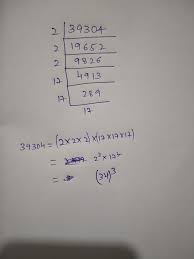 2 | 39304
2 | 19652
2 | 9826
17 | 4913
17 | 289
17
39304 = (2×2×2)×(17×17×17)
= 2³×17³
= (34)³